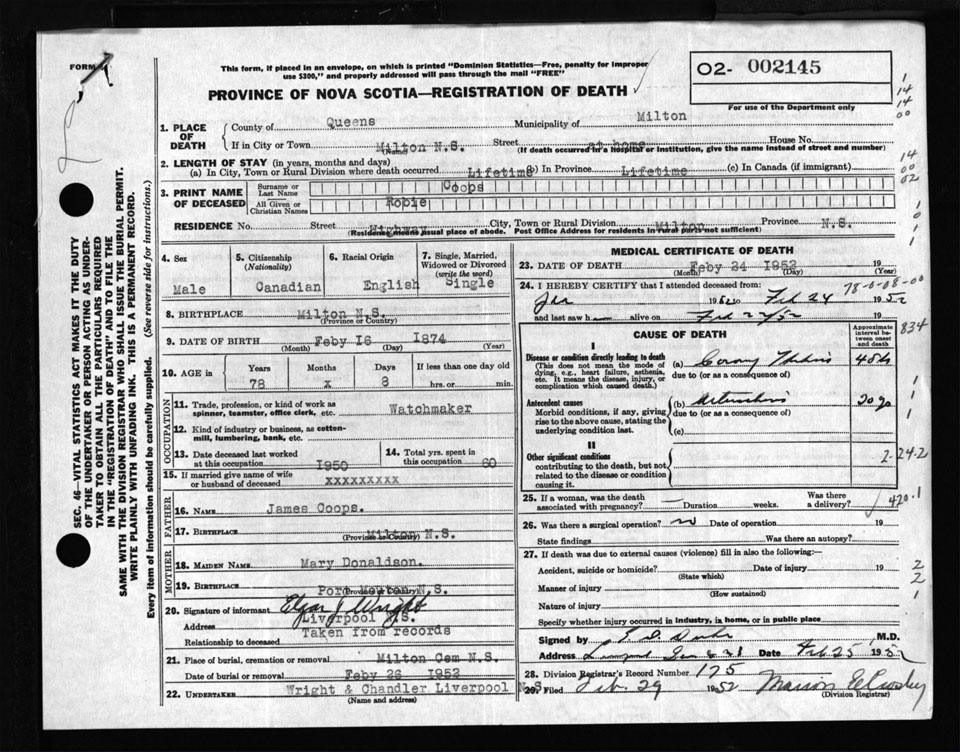 FORM
This form, if placed in an envelope, on which is printed "Dominion Statistics—Free, penalty for improper
use $300," and properly addressed will pass through the mail "FREE"
PROVINCE OF NOVA SCOTIA—REGISTRATION OF DEATH
O2- 002145
For use of the Department only
1. PLACE OF DEATH
County of Queens Municipality of Milton
If in City or Town Milton N.S. Street at home House No.
(Name) (If death occurred in a hospital or institution, give the name instead of street and number)
2. LENGTH OF STAY (in years, months and days)
(a) In City, Town or Rural Division where death occurred Lifetime (b) In Province Lifetime (c) In Canada (if immigrant)
3. PRINT NAME OF DECEASED
Surname or Last Name Coops
All Given or Christian Names Robie
RESIDENCE No. Street Highway City, Town or Rural Division Milton Province N.S.
(Residence means usual place of abode. Post Office Address for residents in rural parts not sufficient)
4. Sex Male
5. Citizenship (Nationality) Canadian
6. Racial Origin English
7. Single, Married, Widowed or Divorced (write the word) Single
8. BIRTHPLACE Milton N.S.
(Province or Country)
9. DATE OF BIRTH Feby I6 I874
(Month) (Day) (Year)
10. AGE in Years 78 Months x Days 8 If less than one day old hrs. or min.
OCCUPATION
11. Trade, profession, or kind of work as spinner, teamster, office clerk, etc. Watchmaker
12. Kind of industry or business, as cotton-mill, lumbering, bank, etc.
13. Date deceased last worked at this occupation I950
14. Total yrs. spent in this occupation 60
15. If married give name of wife or husband of deceased xxxxxxxxx
FATHER
16. NAME James Coops.
17. BIRTHPLACE Milton N.S.
(Province or Country)
MOTHER
18. MAIDEN NAME Mary Donaldson.
19. BIRTHPLACE Port N.S.
(Province or Country)
20. Signature of informant Wright
Address Liverpool N.S.
Relationship to deceased Taken from records
21. Place of burial, cremation or removal Milton Cem N.S.
Date of burial or removal Feby 26 I952
22. UNDERTAKER Wright & Chandler Liverpool N.S.
(Name and address)
MEDICAL CERTIFICATE OF DEATH
23. DATE OF DEATH Feby 24 I952 19
(Month) (Day) (Year)
24. I HEREBY CERTIFY that I attended deceased from: 78-0-08-00
Jan 1952 to Feb 24 1952
and last saw h alive on Feb 22/52
CAUSE OF DEATH
Approximate interval between onset and death
834
I
Disease or condition directly leading to death (a)
(This does not mean the mode of dying, e.g., heart failure, asthenia, etc. It means the disease, injury, or complication which caused death.)
due to (or as a consequence of)
Antecedent causes (b)
Morbid conditions, if any, giving rise to the above cause, stating the underlying condition last.
due to (or as a consequence of)
(c)
II
Other significant conditions
contributing to the death, but not related to the disease or condition causing it.
2-24-2
25. If a woman, was the death associated with pregnancy? Duration weeks. Was there a delivery?
420.1
26. Was there a surgical operation? no Date of operation 19
State findings Was there an autopsy?
27. If death was due to external causes (violence) fill in also the following:
Accident, suicide or homicide? Date of injury 19
(State which)
Manner of injury
(How sustained)
Nature of injury
Specify whether injury occurred in industry, in home, or in public place
Signed by M.D.
Address Liverpool Date Feb 25 1952
28. Division Registrar's Record Number 175
29. Filed Feb. 29 1952 Marion E Crosby
(Division Registrar)
SEC. 46—VITAL STATISTICS ACT MAKES IT THE DUTY
OF THE UNDERTAKER OR PERSON ACTING AS UNDER-
TAKER TO OBTAIN ALL THE PARTICULARS REQUIRED
IN THE "REGISTRATION OF DEATH" AND TO FILE THE
SAME WITH THE DIVISION REGISTRAR WHO SHALL ISSUE THE BURIAL PERMIT.
WRITE PLAINLY WITH UNFADING INK. THIS IS A PERMANENT RECORD.
Every item of information should be carefully supplied. (See reverse side for instructions.)